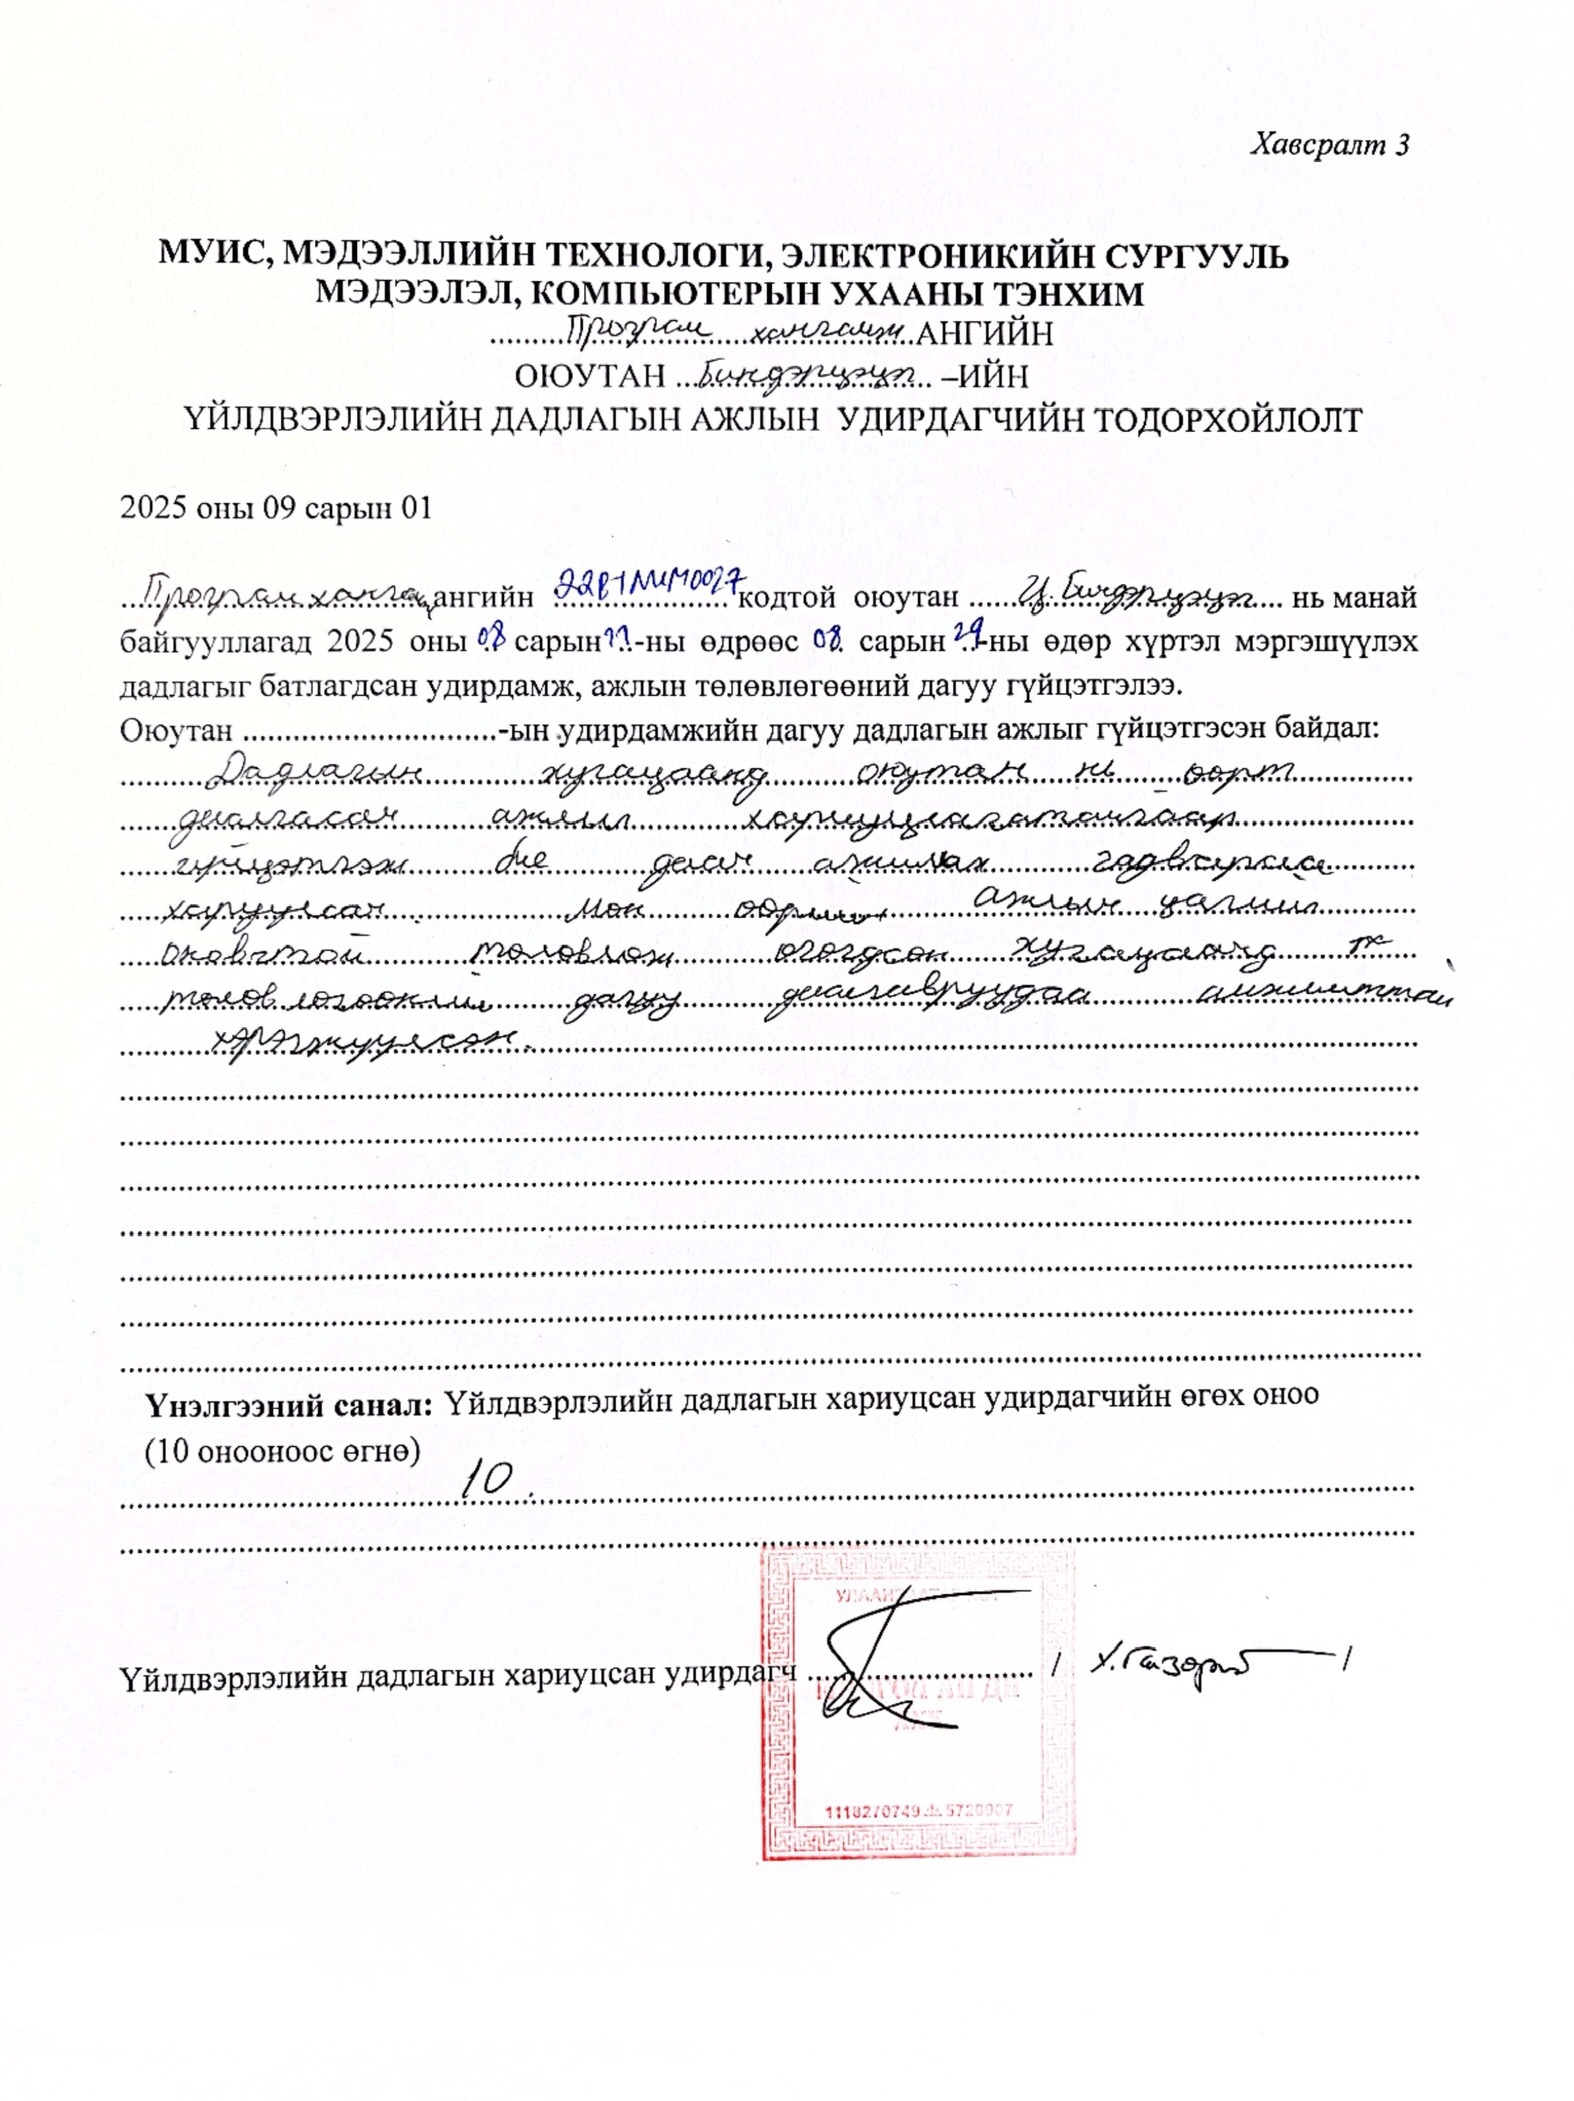 Хавсралт 3
МУИС, МЭДЭЭЛЛИЙН ТЕХНОЛОГИ, ЭЛЕКТРОНИКИЙН СУРГУУЛЬ
МЭДЭЭЛЭЛ, КОМПЬЮТЕРЫН УХААНЫ ТЭНХИМ
.........Програм хангамж.АНГИЙН
ОЮУТАН ...Биндэрцэцэг.. –ИЙН
ҮЙЛДВЭРЛЭЛИЙН ДАДЛАГЫН АЖЛЫН УДИРДАГЧИЙН ТОДОРХОЙЛОЛТ
2025 оны 09 сарын 01
...Програм ханга ангийн 22B1NUM0027 кодтой оюутан ......Ц. Биндэрцэцэг.... нь манай
байгууллагад 2025 оны 08 сарын 11-ны өдрөөс 08 сарын 29-ны өдөр хүртэл мэргэшүүлэх
дадлагыг батлагдсан удирдамж, ажлын төлөвлөгөөний дагуу гүйцэтгэлээ.
Оюутан ...............................-ын удирдамжийн дагуу дадлагын ажлыг гүйцэтгэсэн байдал:
Дадлагын хугацаанд оюутан нь өөрт
даалгасан ажлыг хариуцлагатайгаар
гүйцэтгэж бие даан ажиллах чадвараа
харуулсан. Мөн өөрийн ажлын цагийг
оновчтой төлөвлөж өгөгдсөн хугацаанд
төлөвлөгөөний дагуу даалгавруудаа амжилттай
хэрэгжүүлсэн.
Үнэлгээний санал: Үйлдвэрлэлийн дадлагын хариуцсан удирдагчийн өгөх оноо
(10 онооноос өгнө)
10.
УЛААНБААТАР ХОТ
Үйлдвэрлэлийн дадлагын хариуцсан удирдагч ........................... /
ХХК